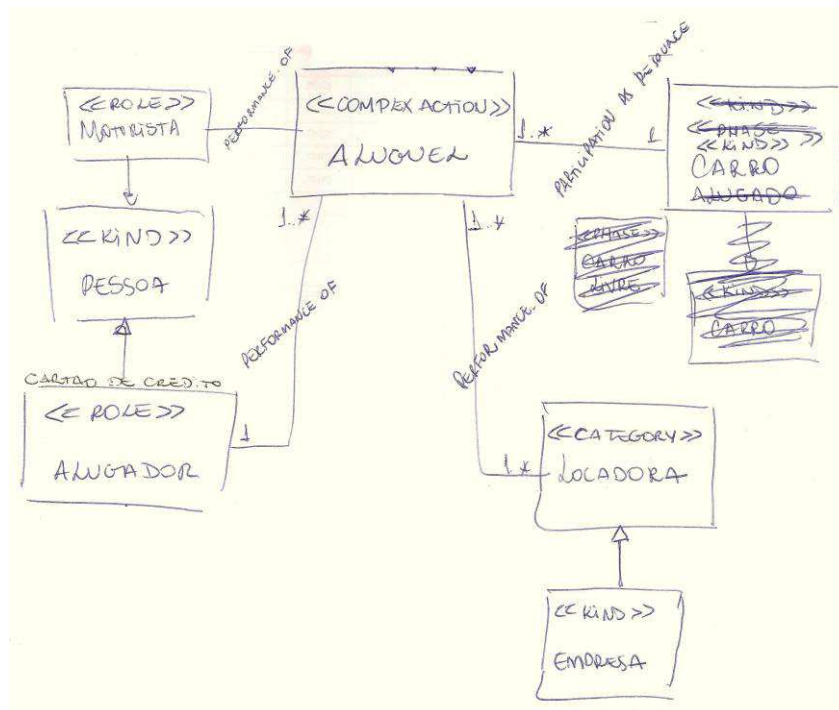 <<ROLE>>
MOTORISTA
PERFORMANCE OF
<<COMPLEX ACTION>>
ALUGUEL
1..*
PARTICIPATION AS RESOURCE
1
<<KIND>>
<<PHASE>>
<<KIND>>
CARRO
ALUGADO
<<KIND>>
PESSOA
1..*
1..*
<<PHASE>>
CARRO
LIVRE
<<KIND>>
CARRO
PERFORMANCE OF
PERFORMANCE OF
CARTAO DE CREDITO
<<ROLE>>
ALUGADOR
1
1.*
<<CATEGORY>>
LOCADORA
<<KIND>>
EMPRESA